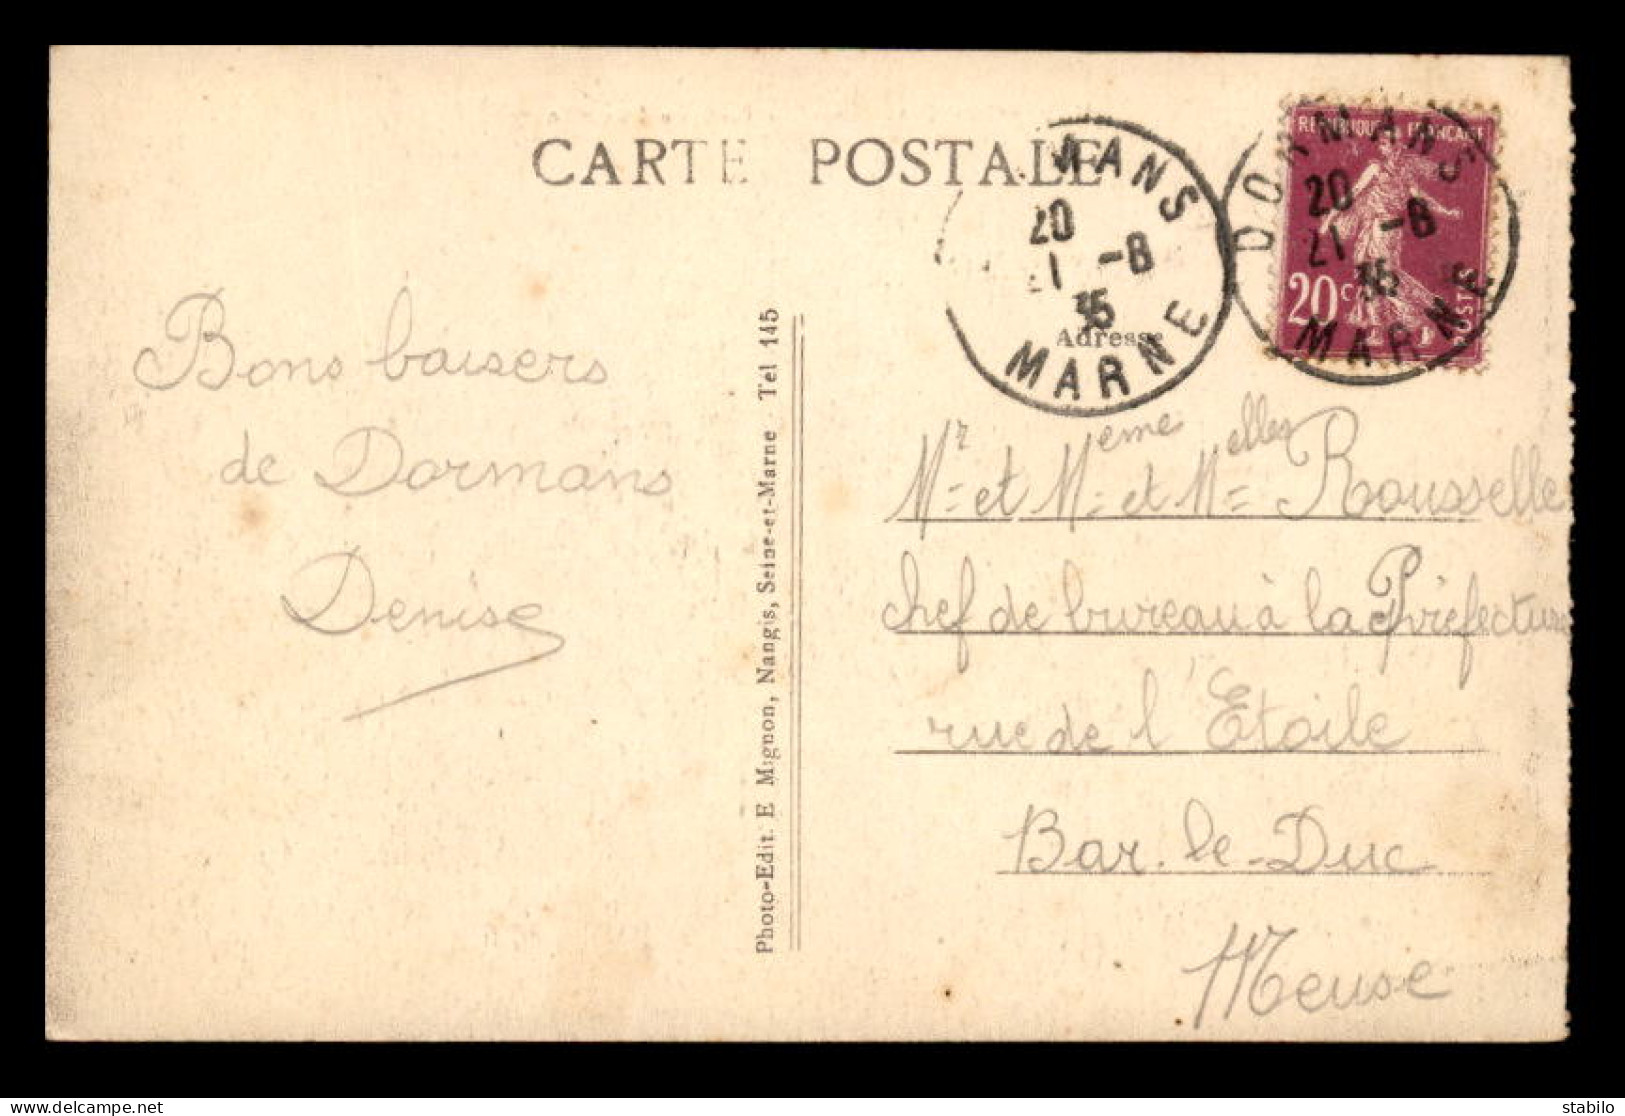 CARTE POSTALE
MANS
20
21 -8
35
MARNE
DORMANS
20
21 -8
35
MARNE
REPUBLIQUE FRANCAISE
20 C
POSTES
Adresse
Bons baisers
de Dormans
Denise
Photo-Edit. E Mignon, Nangis, Seine-et-Marne Tel 145
Mr et Meme et Melles Rousselle
chef de bureau à la Préfecture
rue de l'Etoile
Bar-le-Duc
Meuse
delcampe.net
stabilo